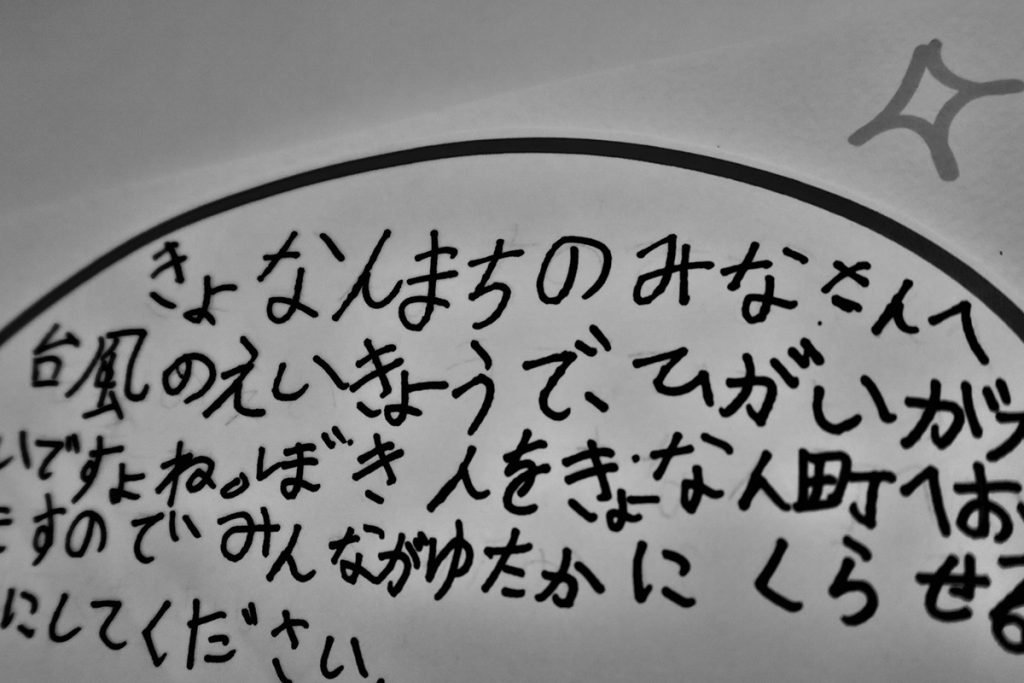 きょなんまちのみなさんへ
台風のえいきょうで、ひがいが
いですよね。ぼきんをきょなん町へお
ますのでみんながゆたかにくらせる
にしてください。